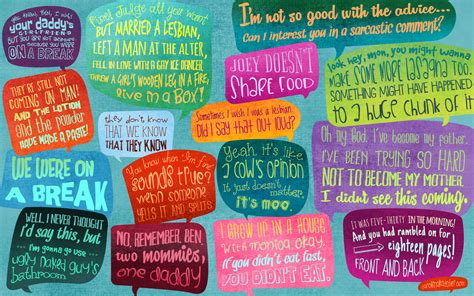 your daddy's
GIRLFRIEND
because you were
ON A BREAK
Pheebs? Judge all you want
BUT MARRIED A LESBIAN,
LEFT A MAN AT THE ALTER,
FELL IN LOVE WITH A GAY ICE DANCER,
THREW A GIRL'S WOODEN LEG IN A FIRE,
LIVE IN A BOX!
I'm not so good with the advice...
Can I interest you in a sarcastic comment?
JOEY DOESN'T
SHARE FOOD
look hey, mom, you might wanna
MAKE SOME MORE LASAGNA TOO,
SOMETHING MIGHT HAVE HAPPENED
TO A HUGE CHUNK OF IT
THEY'RE STILL NOT
COMING ON MAN!
AND THE LOTION
AND THE POWDER
HAVE MADE A PASTE!
they don't know
THAT WE KNOW
THAT THEY KNOW
Sometimes I wish I was a lesbian
Did I say that out loud?
WE WERE ON
A BREAK
You know when I'm fine
SOUNDS TRUE?
when someone
YELLS IT AND SPLITS
Yeah, it's like
A COW'S OPINION
it just doesn't
matter.
IT'S MOO.
Oh my God, I've become my father.
I'VE BEEN TRYING SO HARD
NOT TO BECOME MY MOTHER,
I didn't see this coming.
WELL, I NEVER THOUGHT
I'd say this, but...
I'm gonna go use
ugly naked guy's
bathroom
NO, REMEMBER, BEN,
two mommies,
one daddy
I GREW UP IN A HOUSE
with monica okay.
if you didn't eat fast,
YOU DIDN'T EAT.
IT WAS FIVE-THIRTY IN THE MORNING!
And you had rambled on for
eighteen pages!
FRONT AND BACK